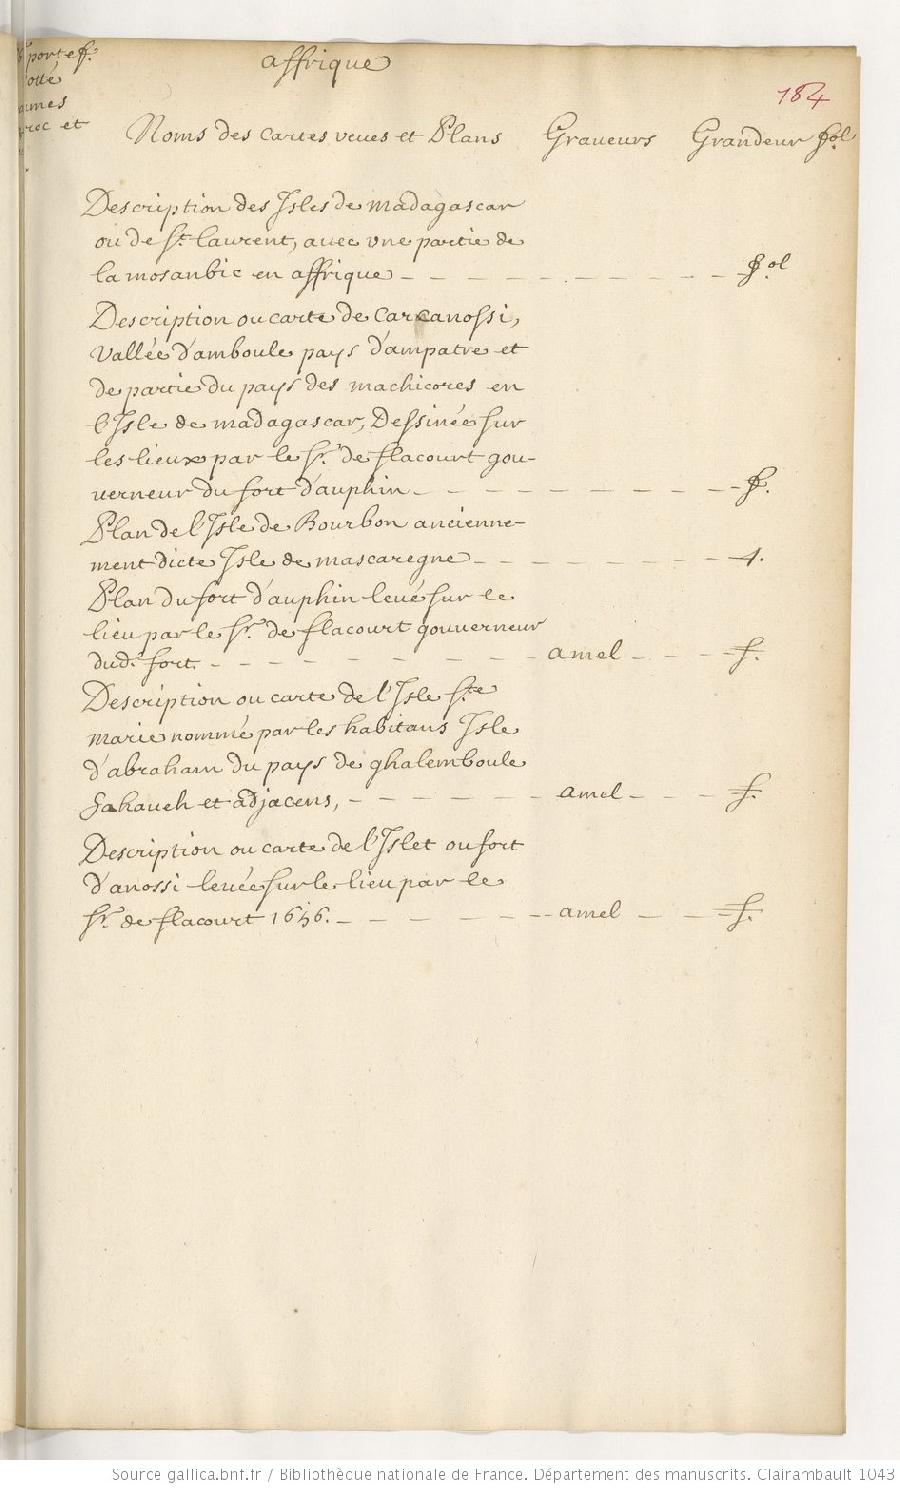 portef.
affrique
184
Noms des cartes veues et Plans Graveurs Grandeur fol
Description des Isles de madagascar
ou de St. laurent, avec une partie de
la mosanbic en affrique - - - - - - - - - - fol
Description ou carte de Carcanossi,
vallée d'amboule pays d'ampatre et
de partie du pays des machicores en
l'Isle de madagascar, Dessinée sur
les lieux par le Sr. de flacourt gou-
verneur du fort d'auphin - - - - - - - - - f.
Plan de l'Isle de Bourbon ancienne-
ment dicte Isle de mascaregne - - - - - - - - 4.
Plan du fort d'auphin levé sur le
lieu par le Sr. de flacourt gouverneur
dud. fort - - - - - - - - amel - - - f.
Description ou carte de l'Isle Ste
marie nommé par les habitans Isle
d'abraham du pays de ghalemboule
Sahaveh et adjacens, - - - - - amel - - - f.
Description ou carte de l'Islet ou fort
d'anossi levée sur le lieu par le
Sr. de flacourt 1656. - - - - - amel - - - f.
Source gallica.bnf.fr / Bibliothèque nationale de France. Département des manuscrits. Clairambault 1043